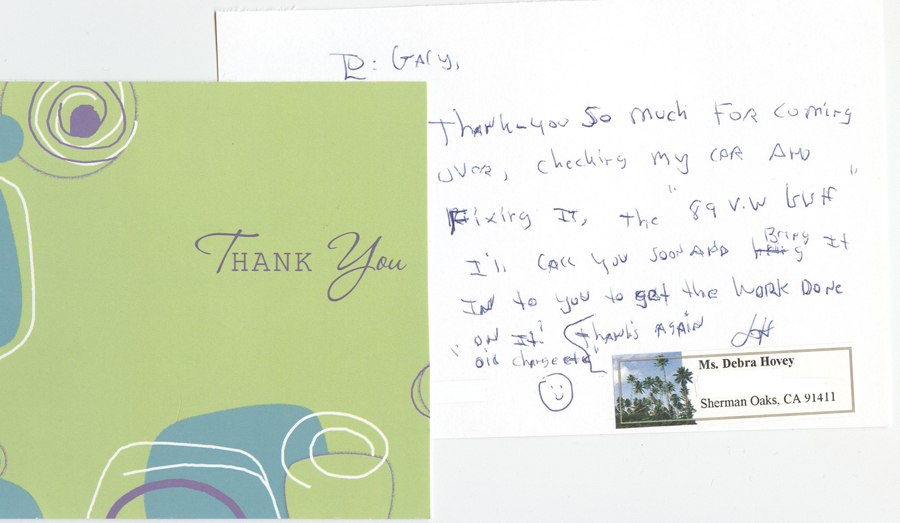 THANK You
To: Gary,
Thank-you So much For coming
over, checking my CAR AND
Fixing It, the "89 V.W Golf"
I'll CALL you soon AND Bring It
IN to you to get the WORK DONE
"ON It! Thanks AGAIN
oil change etc"
Ms. Debra Hovey
Sherman Oaks, CA 91411